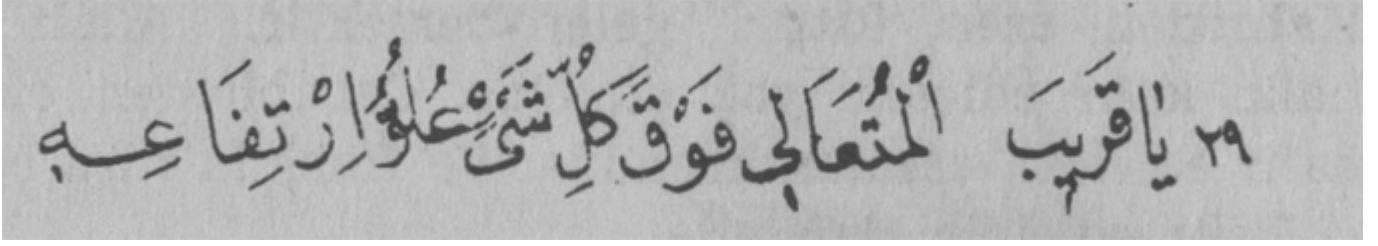 ٢٩ يَا قَرِيبَ الْمُتَعَالِي فَوْقَ كُلِّ شَيْءٍ عُلُوُّ ارْتِفَاعِهِ